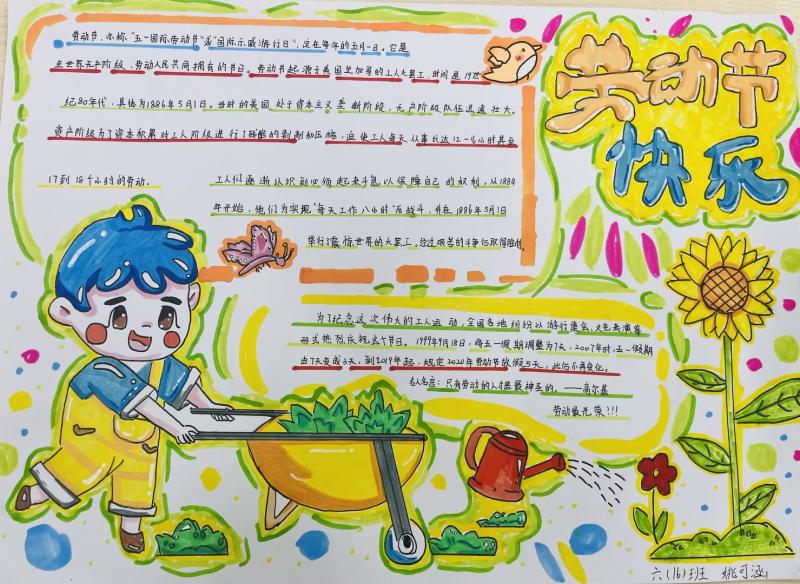 劳动节
快乐
劳动节,亦称“五一国际劳动节”或“国际示威游行日”,定在每年的五月一日。它是
全世界无产阶级、劳动人民共同拥有的节日。劳动节起源于美国芝加哥的工人大罢工,时间是19世
纪80年代,具体为1886年5月1日。当时的美国处于资本主义发新阶段,无产阶级队伍迅速壮大。
资产阶级为了资本积累对工人阶级进行了残酷的剥削和压榨,迫使工人每天从事长达12—16小时甚至
17到18个小时的劳动。
工人们逐渐认识到必须起来斗争以保障自己的权利。从1884
年开始,他们为实现“每天工作八小时”而战斗,并在1886年5月1日
举行了震惊世界的大罢工,经过艰苦的斗争后取得胜利
为了纪念这次伟大的工人运动,全国各地纷纷以游行集会、文艺表演等
形式热烈庆祝这个节日。1999年9月18日,将五一假期调整为7天,2007年时,五一假期
由7天变成3天,到2019年起,规定2020年劳动节放假5天,此后不再变化。
名人名言:只有劳动的人才是最神圣的。——高尔基
劳动最光荣!!!
六(16)班 姚可涵